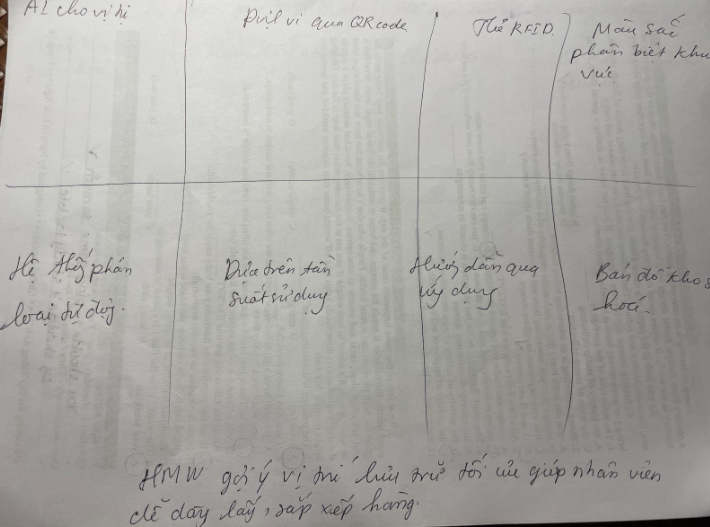 AI cho vị trị
Định vị qua QR code.
Thẻ RFID.
Màu sắc
phân biệt khu
vực
Hệ thống phân
loại tự động.
Dựa trên tần
suất sử dụng
Hướng dẫn qua
ứng dụng
Bản đồ kho số
hoá.
HMW gợi ý vị trí lưu trữ tối ưu giúp nhân viên
dễ dàng lấy, sắp xếp hàng.